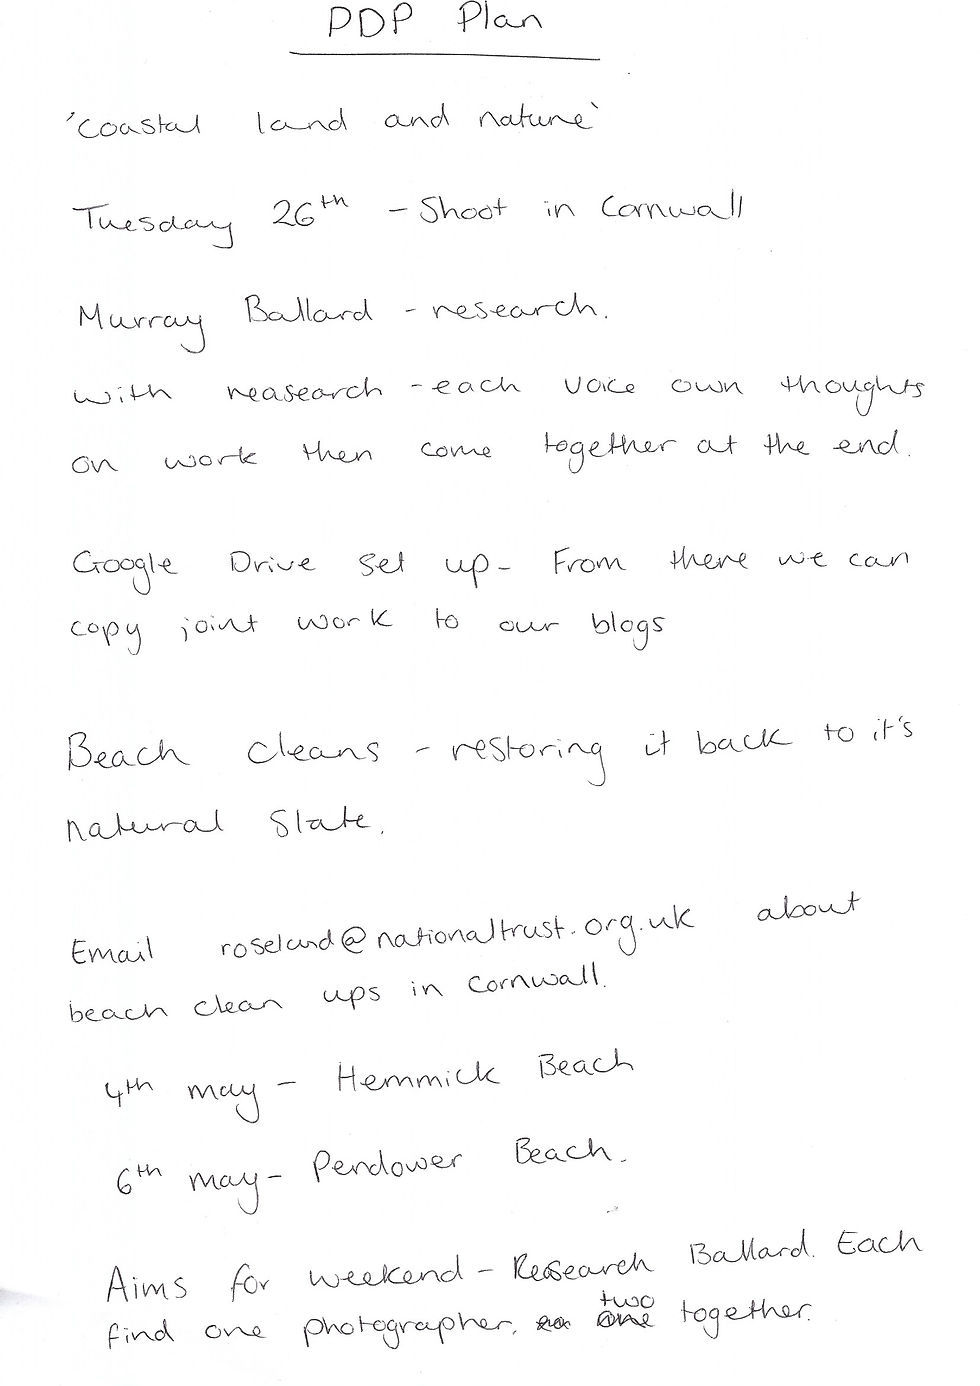 PDP Plan
'Coastal land and nature'
Tuesday 26th - Shoot in Cornwall
Murray Ballard - research.
with reasearch - each voice own thoughts
on work then come together at the end.
Google Drive set up - From there we can
copy joint work to our blogs
Beach cleans - restoring it back to it's
natural slate.
Email roseland@nationaltrust.org.uk about
beach clean ups in Cornwall.
4th may - Hemmick Beach
6th may - Pendower Beach.
Aims for weekend - Research Ballard. Each
find one photographer, two together.